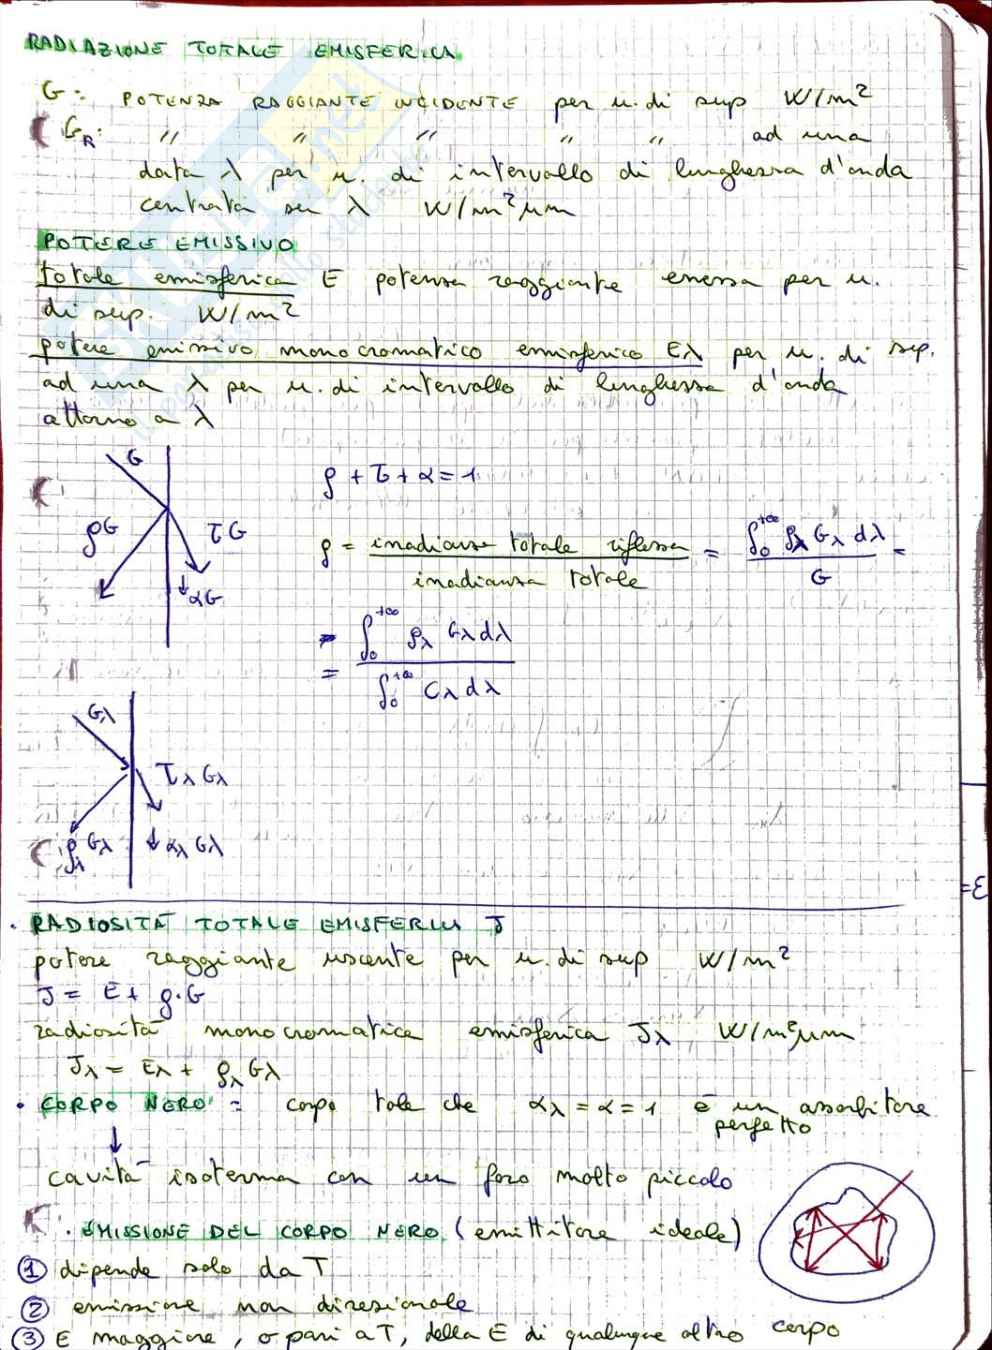 RADIAZIONE TOTALE EMISFERICA
G: POTENZA RAGGIANTE INCIDENTE per u. di sup W/m²
G_R: " " " " " ad una
data λ per u. di intervallo di lunghezza d'onda
centrata su λ W/m²μm
POTERE EMISSIVO
totale emisferica E potenza raggiante emessa per u.
di sup. W/m²
potere emissivo monocromatico emisferico Eλ per u. di sup.
ad una λ per u. di intervallo di lunghezza d'onda
attorno a λ
G
ρG τG
αG
ρ + τ + α = 1
ρ = irradianza totale riflessa / irradianza totale = ∫₀^{+∞} ρλ Gλ dλ / G =
= ∫₀^{+∞} ρλ Gλ dλ / ∫₀^{+∞} Gλ dλ
Gλ
τλ Gλ
ρλ Gλ αλ Gλ
=E
• RADIOSITÀ TOTALE EMISFERICA J
potere raggiante uscente per u. di sup W/m²
J = E + ρ·G
radiosità monocromatica emisferica Jλ W/m²μm
Jλ = Eλ + ρλ Gλ
• CORPO NERO = corpo tale che αλ = α = 1 è un assorbitore
perfetto
cavità isoterma con un foro molto piccolo
• EMISSIONE DEL CORPO NERO (emittitore ideale)
① dipende solo da T
② emissione non direzionale
③ E maggiore, o pari a T, della E di qualunque altro corpo